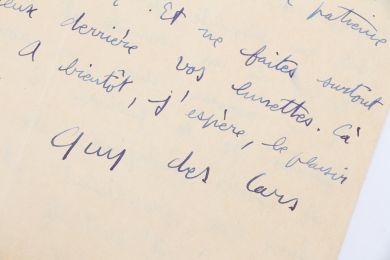 patience
. Et ne faites surtout
eux derrière vos lunettes. Çà
A bientôt, j'espère, le plaisir
Guy des Cars